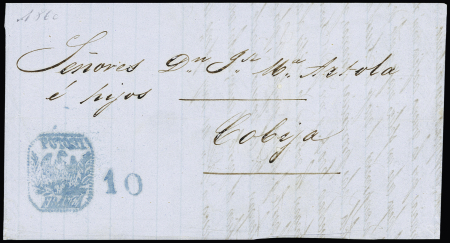 1860
Señores Dn Jn Mn Artola
é hijos
Cobija
POTOSI
FRANCA
10